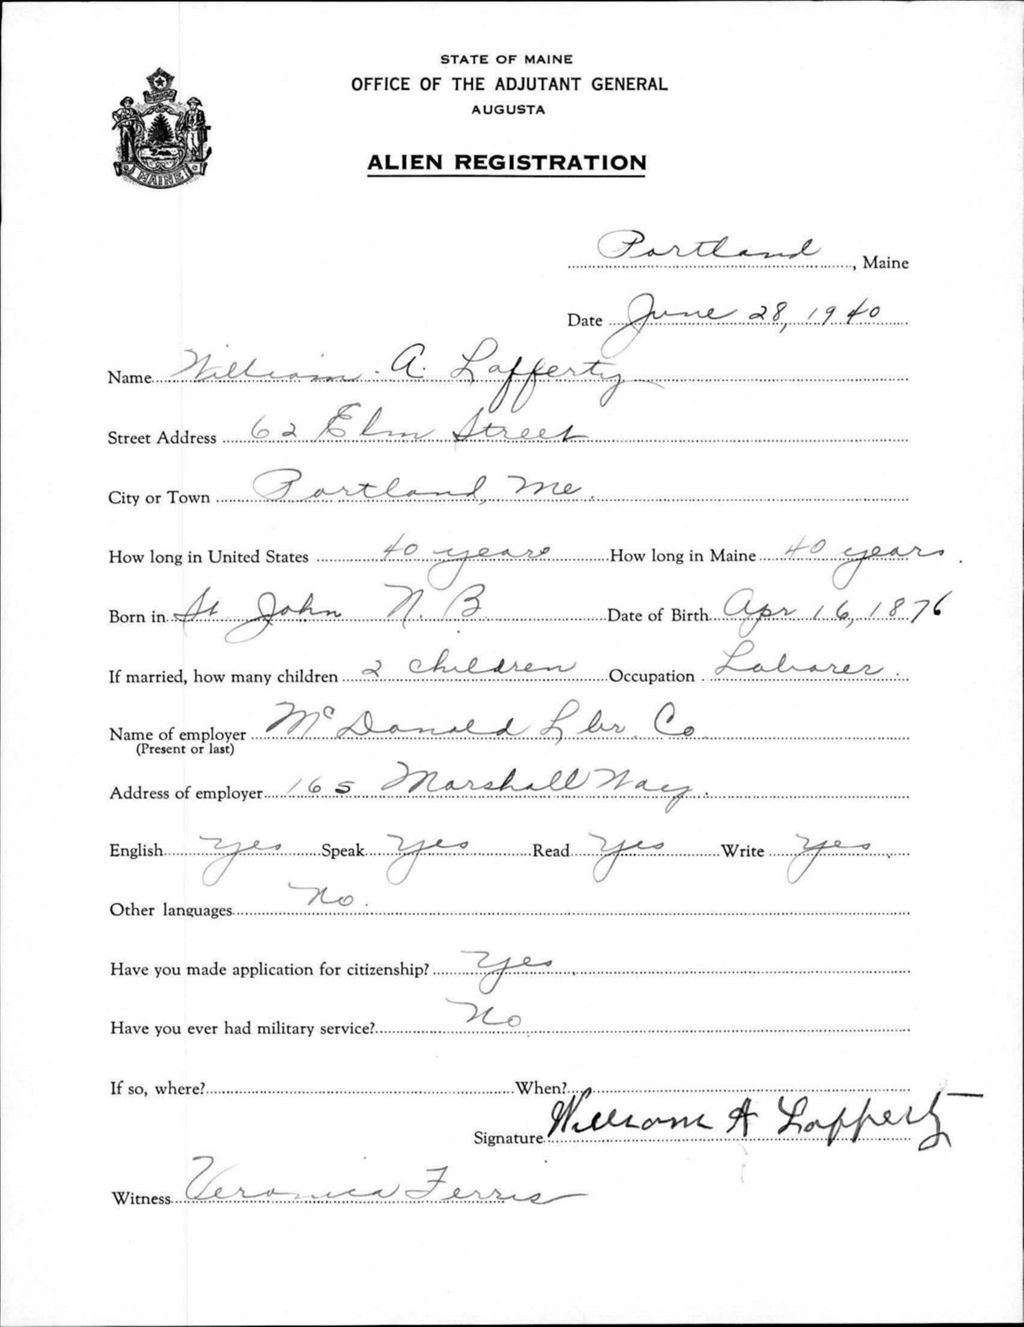 STATE OF MAINE
OFFICE OF THE ADJUTANT GENERAL
AUGUSTA
ALIEN REGISTRATION
MAINE
Portland, Maine
Date June 28, 1940
Name William A. Lafferty
Street Address 62 Elm Street
City or Town Portland, Me.
How long in United States 40 years How long in Maine 40 years.
Born in St John N. B. Date of Birth Apr 16, 1876
If married, how many children 2 children Occupation Laborer
Name of employer McDonald Lbr. Co
(Present or last)
Address of employer 165 Marshall Way.
English yes Speak yes Read yes Write yes
Other languages No.
Have you made application for citizenship? Yes
Have you ever had military service? No
If so, where? When?
Signature William A Lafferty
Witness Veronica Ferris